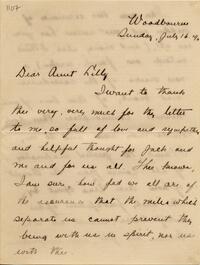 1107
Woodbourne
Sunday, July 16.
Dear Aunt Lilly
I want to thank
thee very, very much for thy letter
to me, so full of love and sympathy
and helpful thought for Jack and
me and for us all. Thee knows,
I am sure, how glad we all are, of
the assurance that the miles which
separate us cannot prevent thy
being with us in spirit, nor us
with thee.